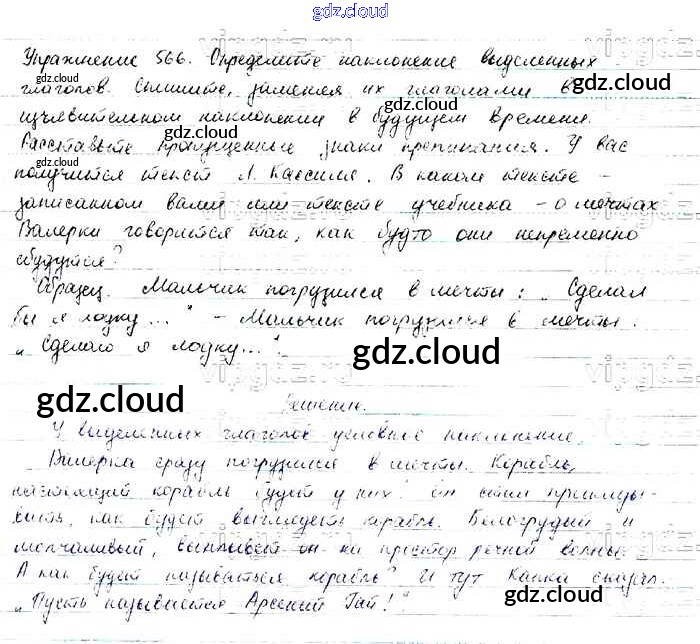 gdz.cloud
Упражнение 566. Определите наклонение выделенных
глаголов. Спишите, заменяя их глаголами в
изъявительном наклонении в будущем времени.
Расставьте пропущенные знаки препинания. У вас
получится текст Л. Кассиля. В каком тексте -
записанном вами или тексте учебника - о мечтах
Валерки говорится так, как будто они непременно
сбудутся?
Образец. Мальчик погрузился в мечты: „Сделал
бы я лодку..." - Мальчик погрузился в мечты:
„Сделаю я лодку...".
gdz.cloud
Решение.
У выделенных глаголов условное наклонение.
Валерка сразу погрузился в мечты. Корабль,
настоящий корабль будет у них! Он стал прикиды-
вать, как будет выглядеть корабль. Белогрудый и
молчаливый, выплывет он на простор речной волны.
А как будет называться корабль? И тут Капка сказал:
„Пусть называется Арсений Гай!"
gdz.cloud